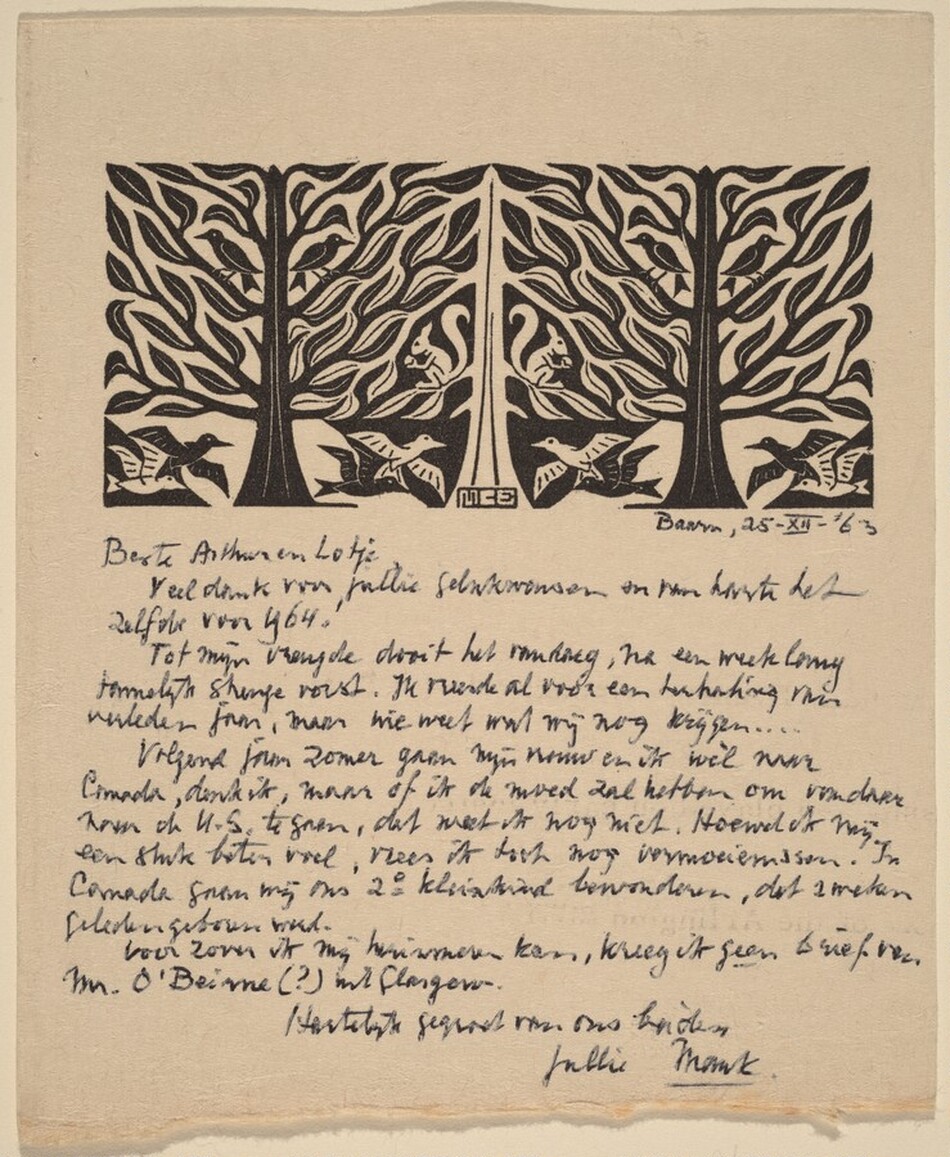 MCE
Baarn, 25-XII-'63
Beste Arthur en Lotje,
Veel dank voor jullie gelukwensen en van harte het
zelfde voor 1964!
Tot mijn vreugde dooit het vandaag, na een week lang
tamelijk strenge vorst. Ik vreesde al voor een herhaling van
verleden jaar, maar wie weet wat wij nog krijgen....
Volgend jaar zomer gaan mijn vrouw en ik wel naar
Canada, denk ik, maar of ik de moed zal hebben om vandaar
naar de U.S. te gaan, dat weet ik nog niet. Hoewel ik mij
een stuk beter voel, vrees ik toch nog vermoeienissen. In
Canada gaan wij ons 2e kleinkind bewonderen, dat 2 weken
geleden geboren werd.
Voor zover ik mij herinneren kan, kreeg ik geen brief van
Mr. O'Beirne (?) uit Glasgow.
Hartelijk gegroet van ons beiden
jullie Mauk.